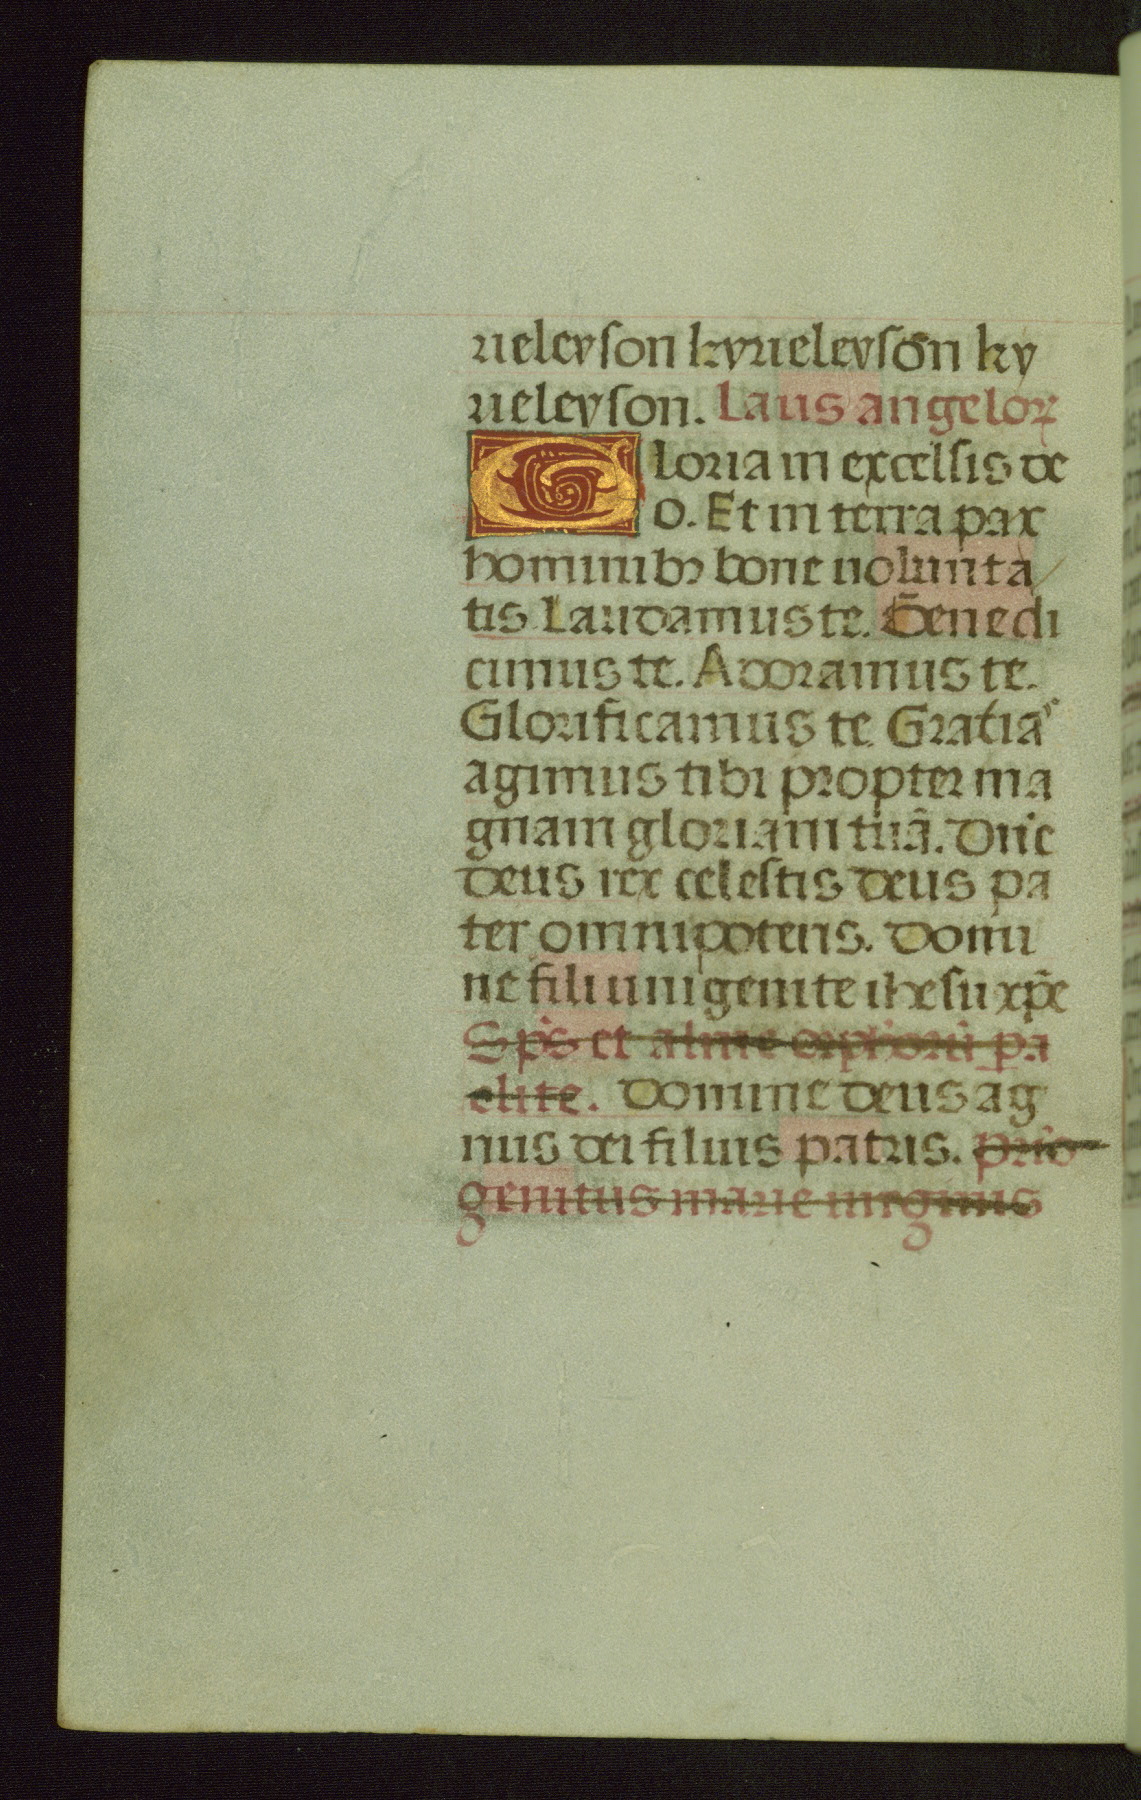 rieleyson kyrieleyson ky
rieleyson. Laus angeloꝝ
Gloria in excelsis de
o. Et in terra pax
hominibꝫ bone uolunta
tis Laudamus te. Benedi
cimus te. Adoramus te.
Glorificamus te Gratias
agimus tibi propter ma
gnam gloriam tuã. Dñe
deus rex celestis deus pa
ter omnipotens. Domi
ne fili unigenite ihesu xp̃e
Sp̃s et alme orphanoꝝ pa
clite. Domine deus ag
nus dei filius patris. prio
genitus marie uirginis